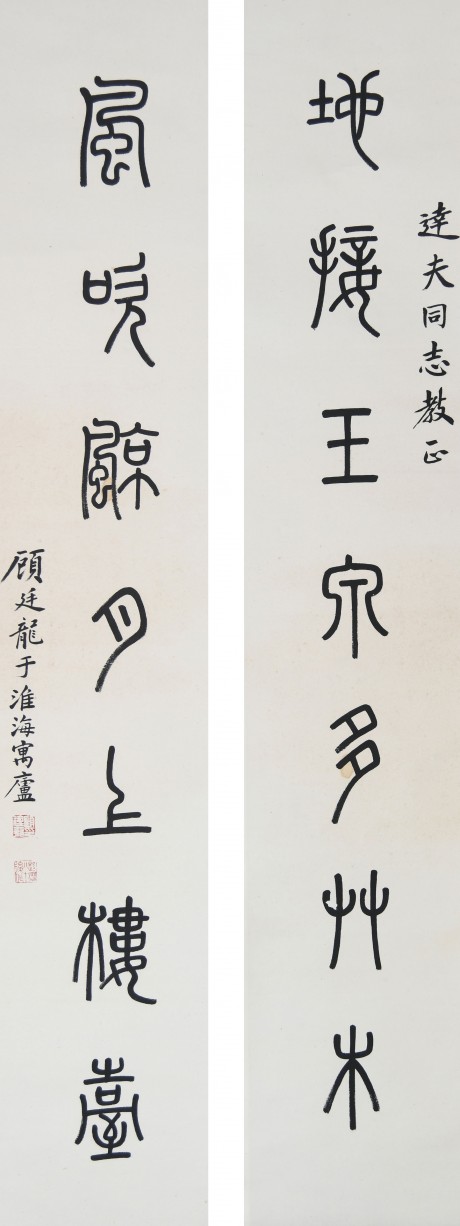 達夫同志教正
地接玉泉多艸木
風吹䬝月上樓臺
顧廷龍于淮海寓廬